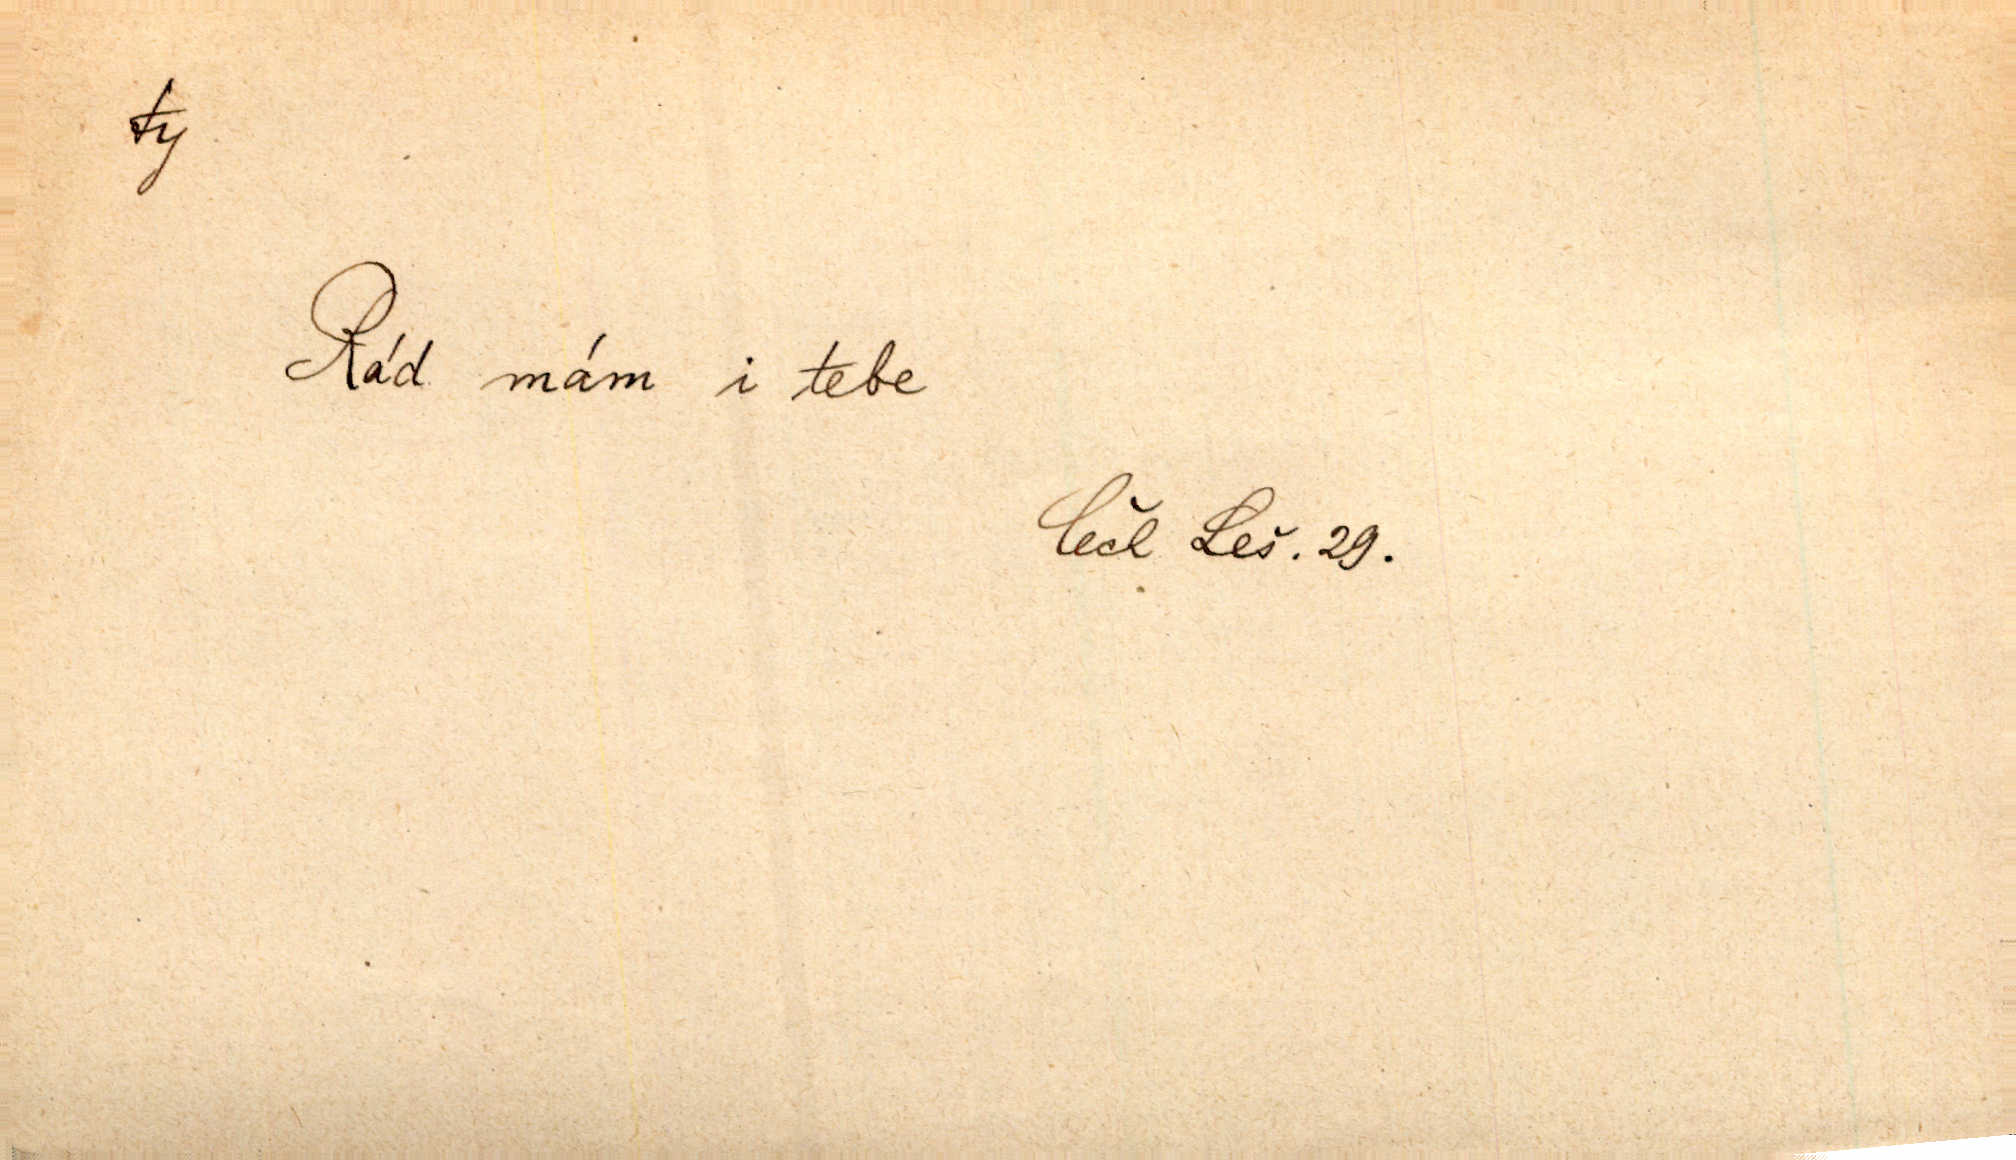 ty
Rád mám i tebe
Čech Leš. 29.